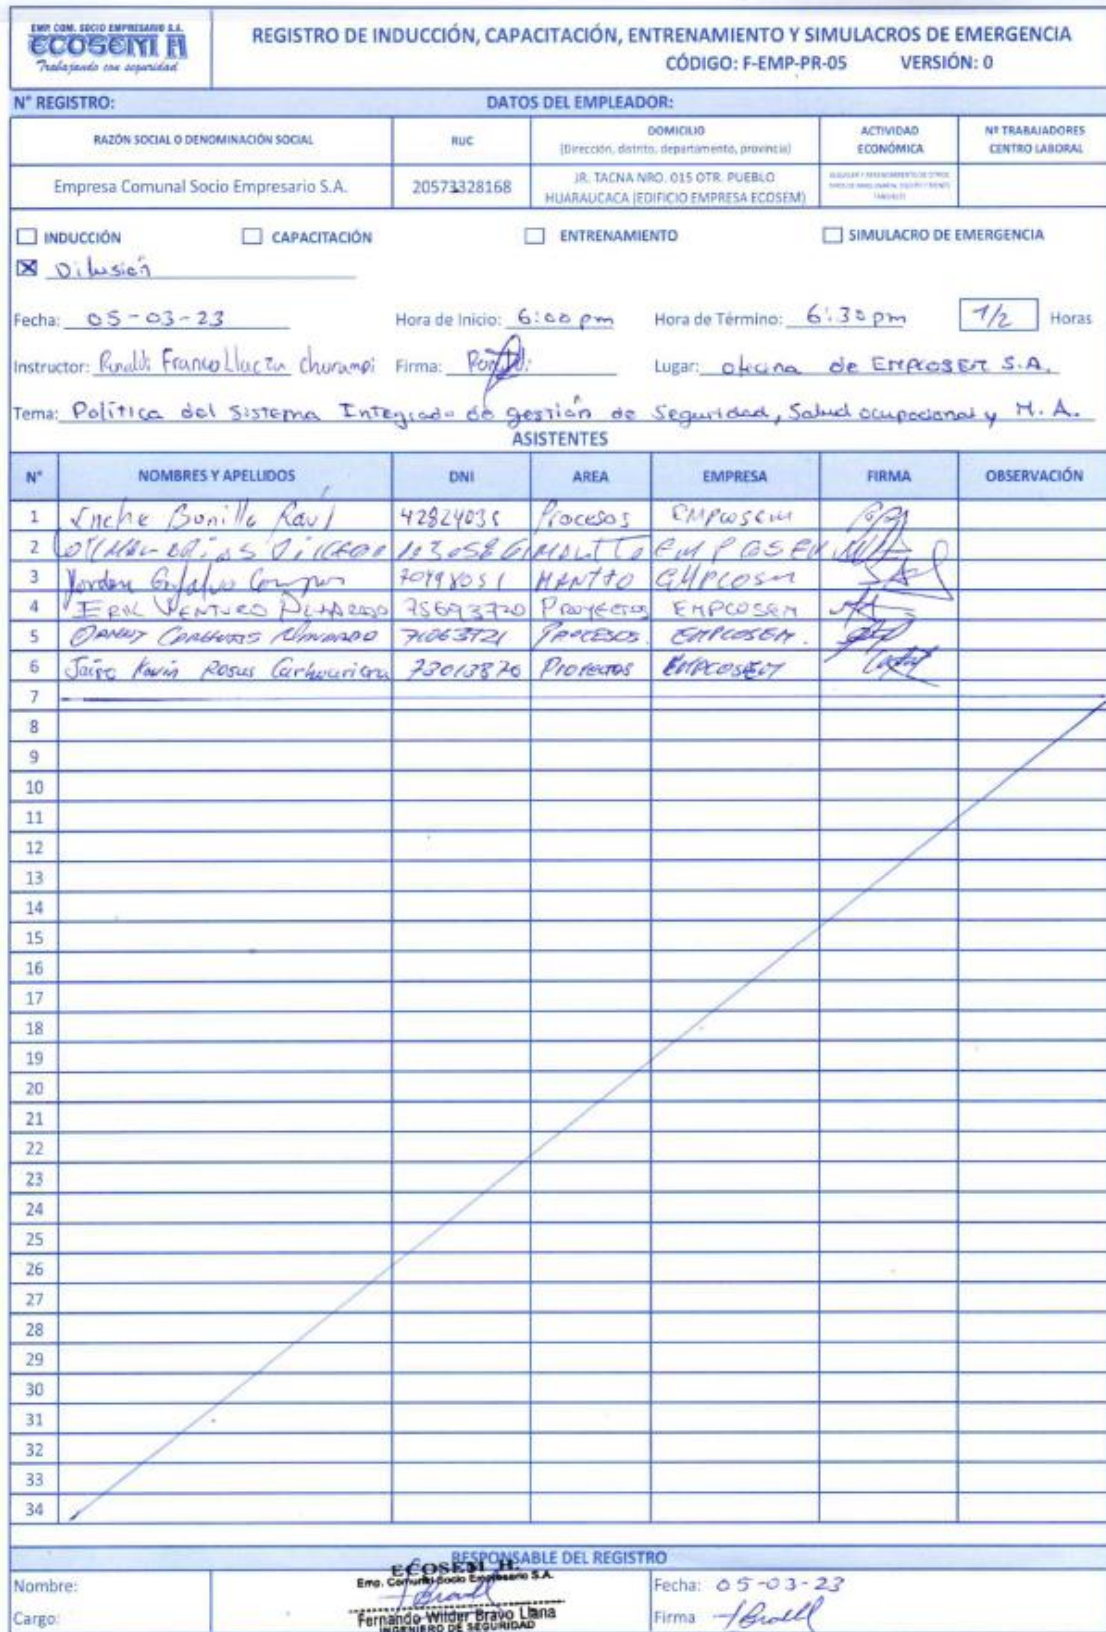 EMP. COM. SOCIO EMPRESARIO S.A.
ECOSEM H
Trabajando con seguridad
REGISTRO DE INDUCCIÓN, CAPACITACIÓN, ENTRENAMIENTO Y SIMULACROS DE EMERGENCIA
CÓDIGO: F-EMP-PR-05 VERSIÓN: 0
N° REGISTRO: DATOS DEL EMPLEADOR:
RAZÓN SOCIAL O DENOMINACIÓN SOCIAL RUC DOMICILIO (Dirección, distrito, departamento, provincia) ACTIVIDAD ECONÓMICA Nº TRABAJADORES CENTRO LABORAL
Empresa Comunal Socio Empresario S.A. 20573328168 JR. TACNA NRO. 015 OTR. PUEBLO HUARAUCACA (EDIFICIO EMPRESA ECOSEM)
INDUCCIÓN CAPACITACIÓN ENTRENAMIENTO SIMULACRO DE EMERGENCIA
Difusión
Fecha: 05-03-23 Hora de Inicio: 6:00 pm Hora de Término: 6:30 pm 1/2 Horas
Instructor: Franco Churampi Firma: Lugar: oficina de EMPCOSEM S.A.
Tema: Política del Sistema Integrado de gestión de Seguridad, Salud ocupacional y M.A.
ASISTENTES
N° NOMBRES Y APELLIDOS DNI AREA EMPRESA FIRMA OBSERVACIÓN
1 Inche Bonilla Raul Procesos EMPCOSEM
2 EMPCOSEM
3 MANTTO EMPCOSEM
4 VENTURO 75693720 PROYECTOS EMPCOSEM
5 71063721 PROCESOS. EMPCOSEM.
6 Jairo Kevin Rosas 73013870 PROYECTOS EMPCOSEM
7
8
9
10
11
12
13
14
15
16
17
18
19
20
21
22
23
24
25
26
27
28
29
30
31
32
33
34
RESPONSABLE DEL REGISTRO
ECOSEM H.
Emp. Comunal Socio Empresario S.A.
Nombre: Fecha: 05-03-23
Fernando Wilder Bravo Llana
Cargo: INGENIERO DE SEGURIDAD Firma